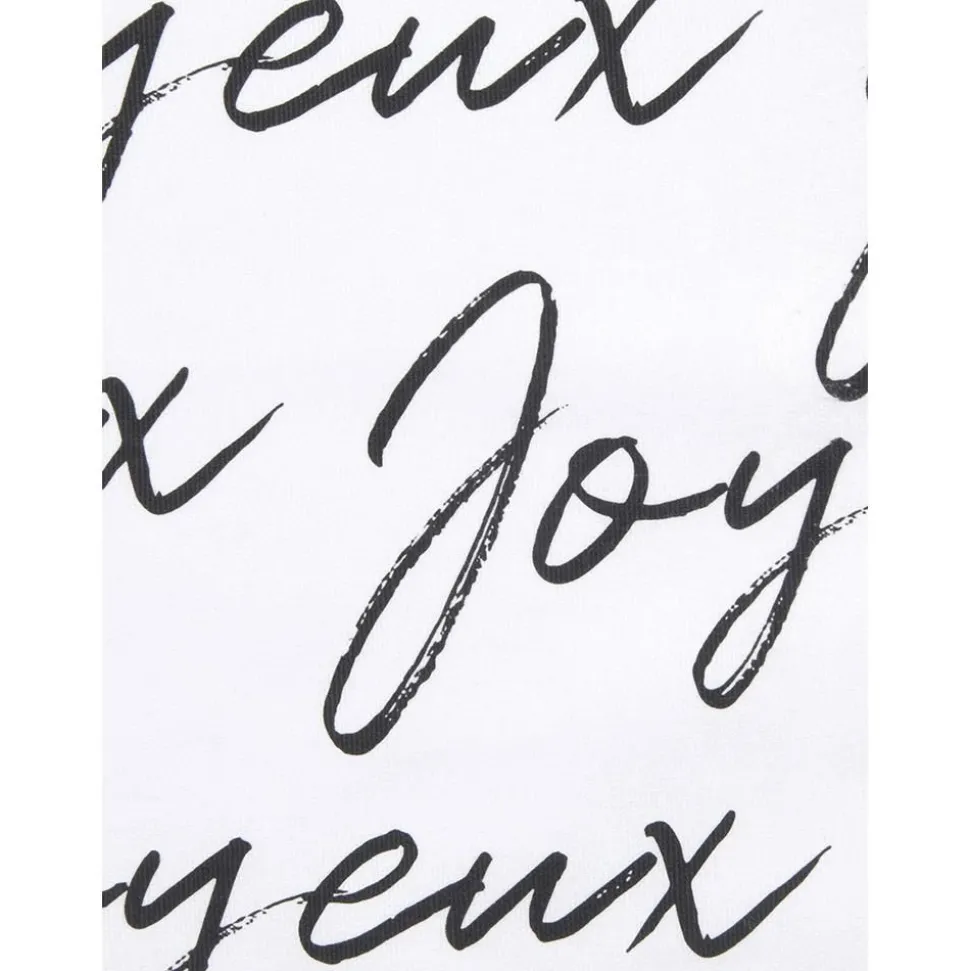 yeux
x Joy
yeux